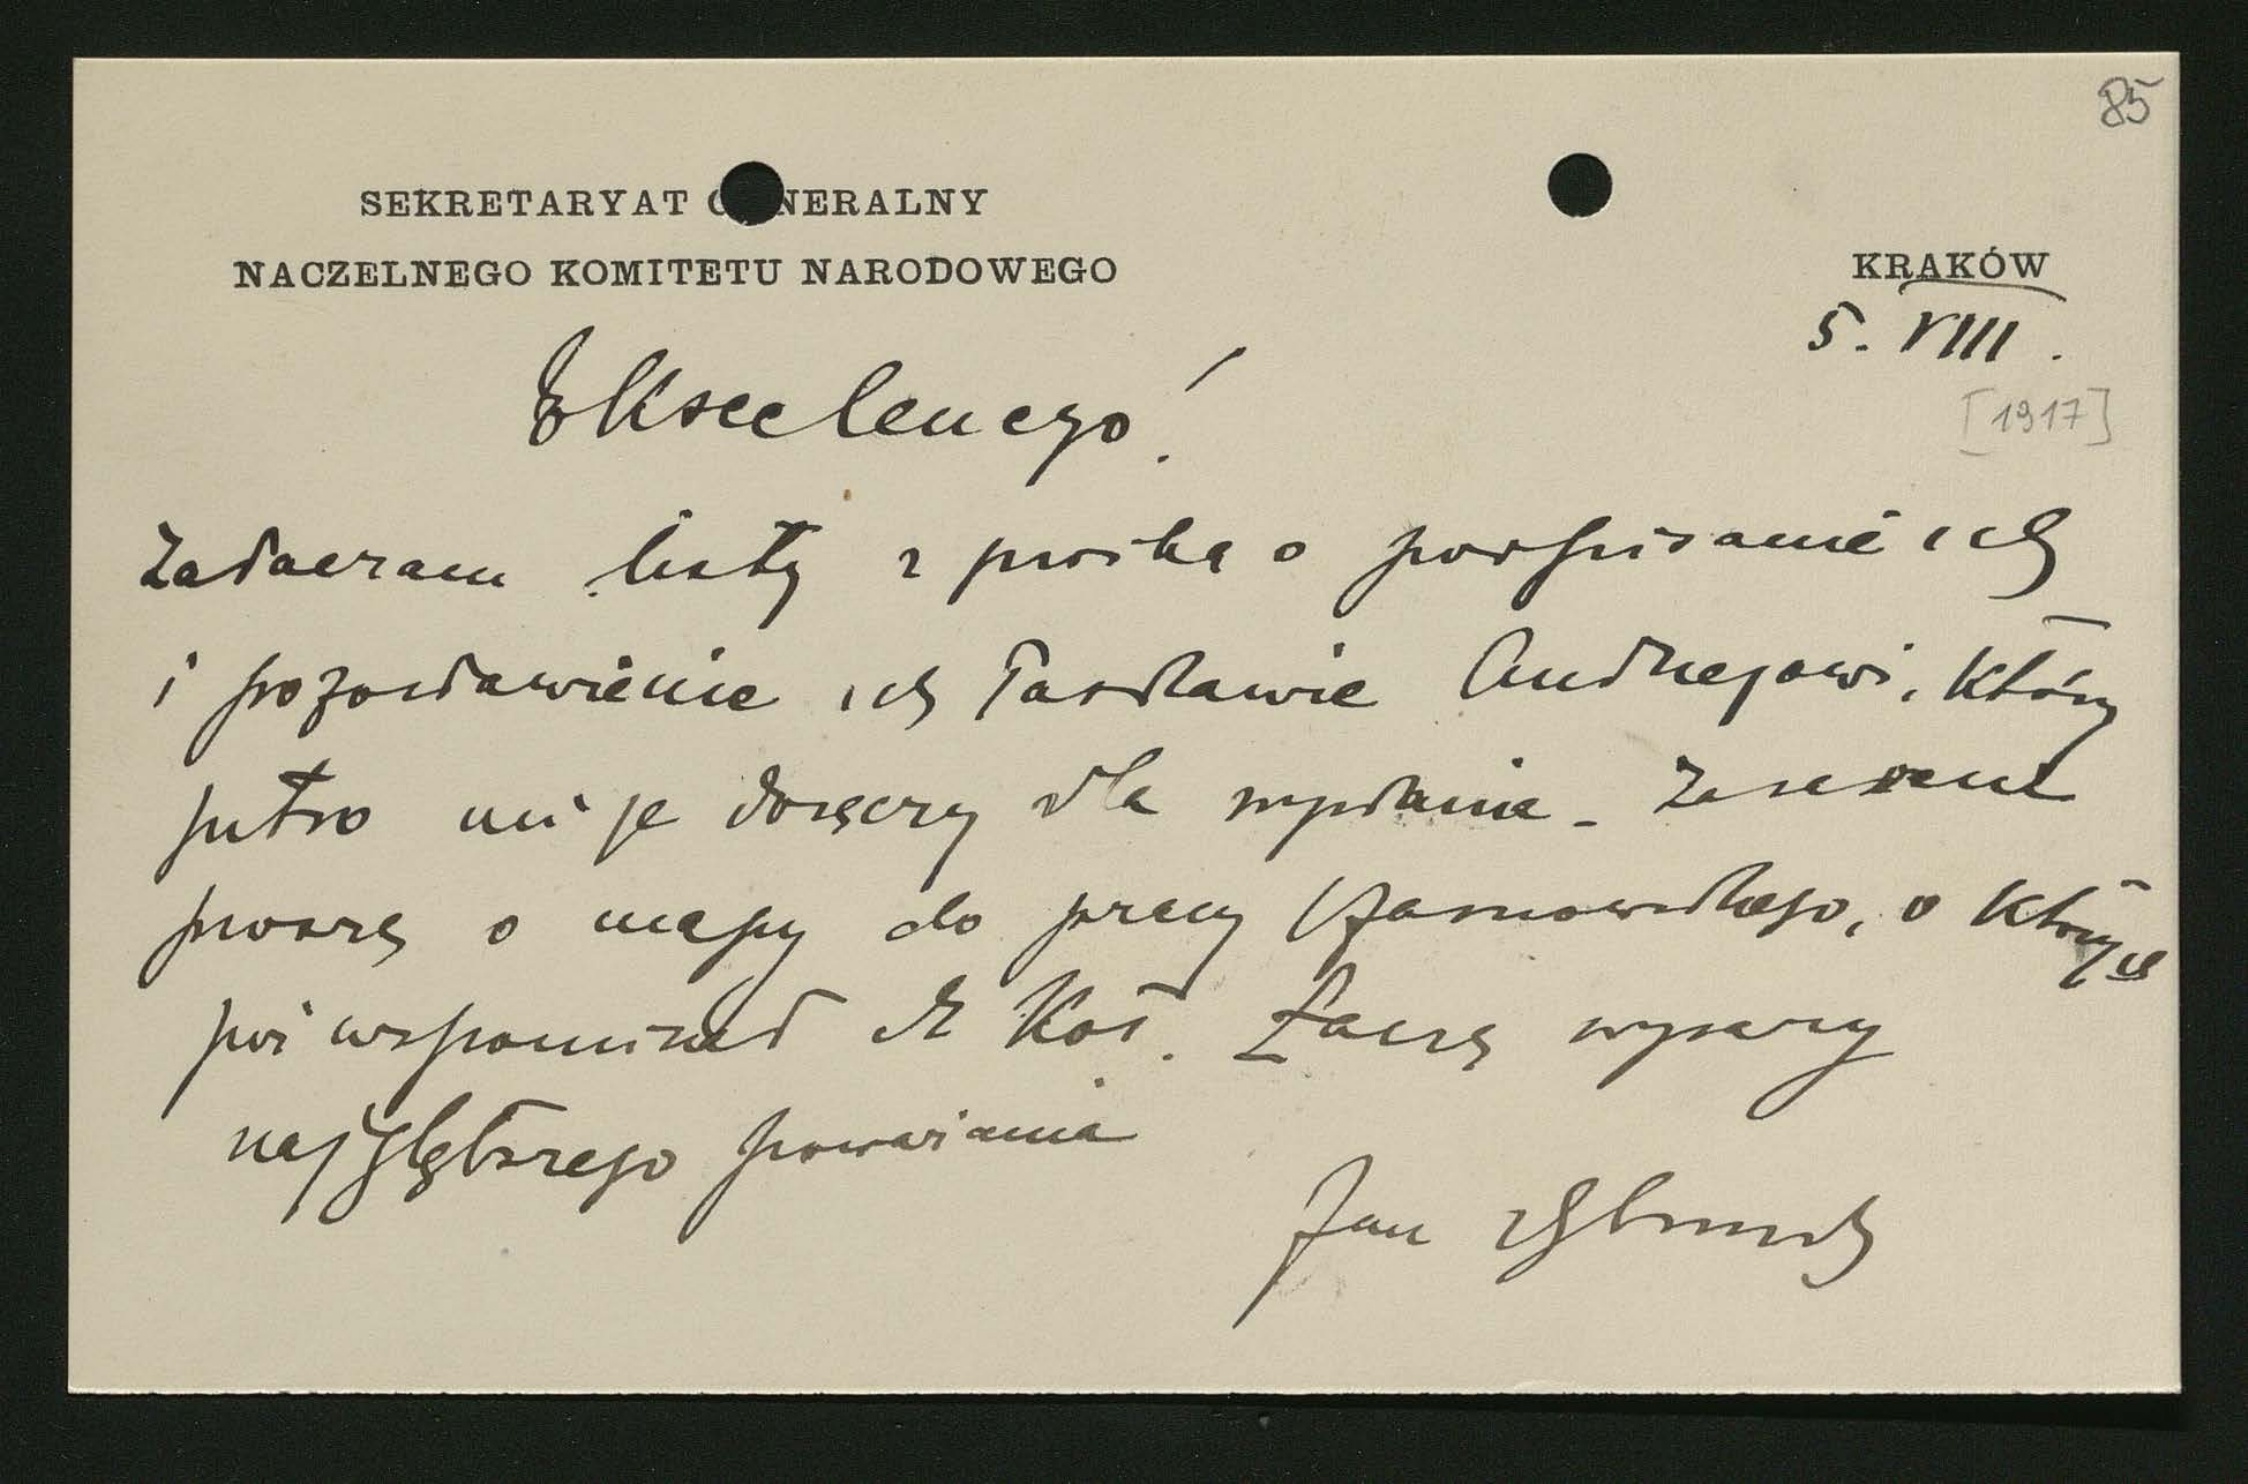 85
SEKRETARYAT GENERALNY
NACZELNEGO KOMITETU NARODOWEGO
KRAKÓW
5. VIII.
[1917]
Ekscelencyo!
Załączam listy z prośbą o podpisanie ich
i pozostawienie ich łaskawie Andrzejowi, który
jutro mi je doręczy dla wysłania. Zarazem
proszę o mapy do pracy Czarnowskiego, o których
już wspominał dr Kot. Łączę wyrazy
najgłębszego poważania
Jan